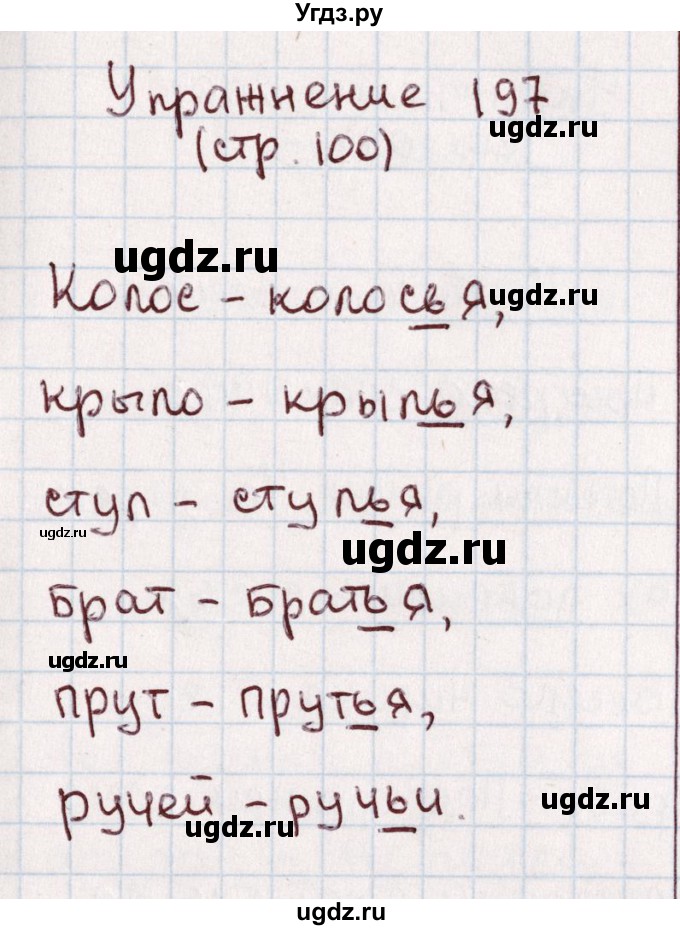 Угдз.ру
Упражнение 197
ugdz.ru
(стр. 100)
ugdz.ru
Колос – колосья,
ugdz.ru
крыло – крылья,
стул – стулья,
ugdz.ru
ugdz.ru
брат – братья,
ugdz.ru
прут – прутья,
ручей – ручьи.
ugdz.ru
ugdz.ru
ugdz.ru